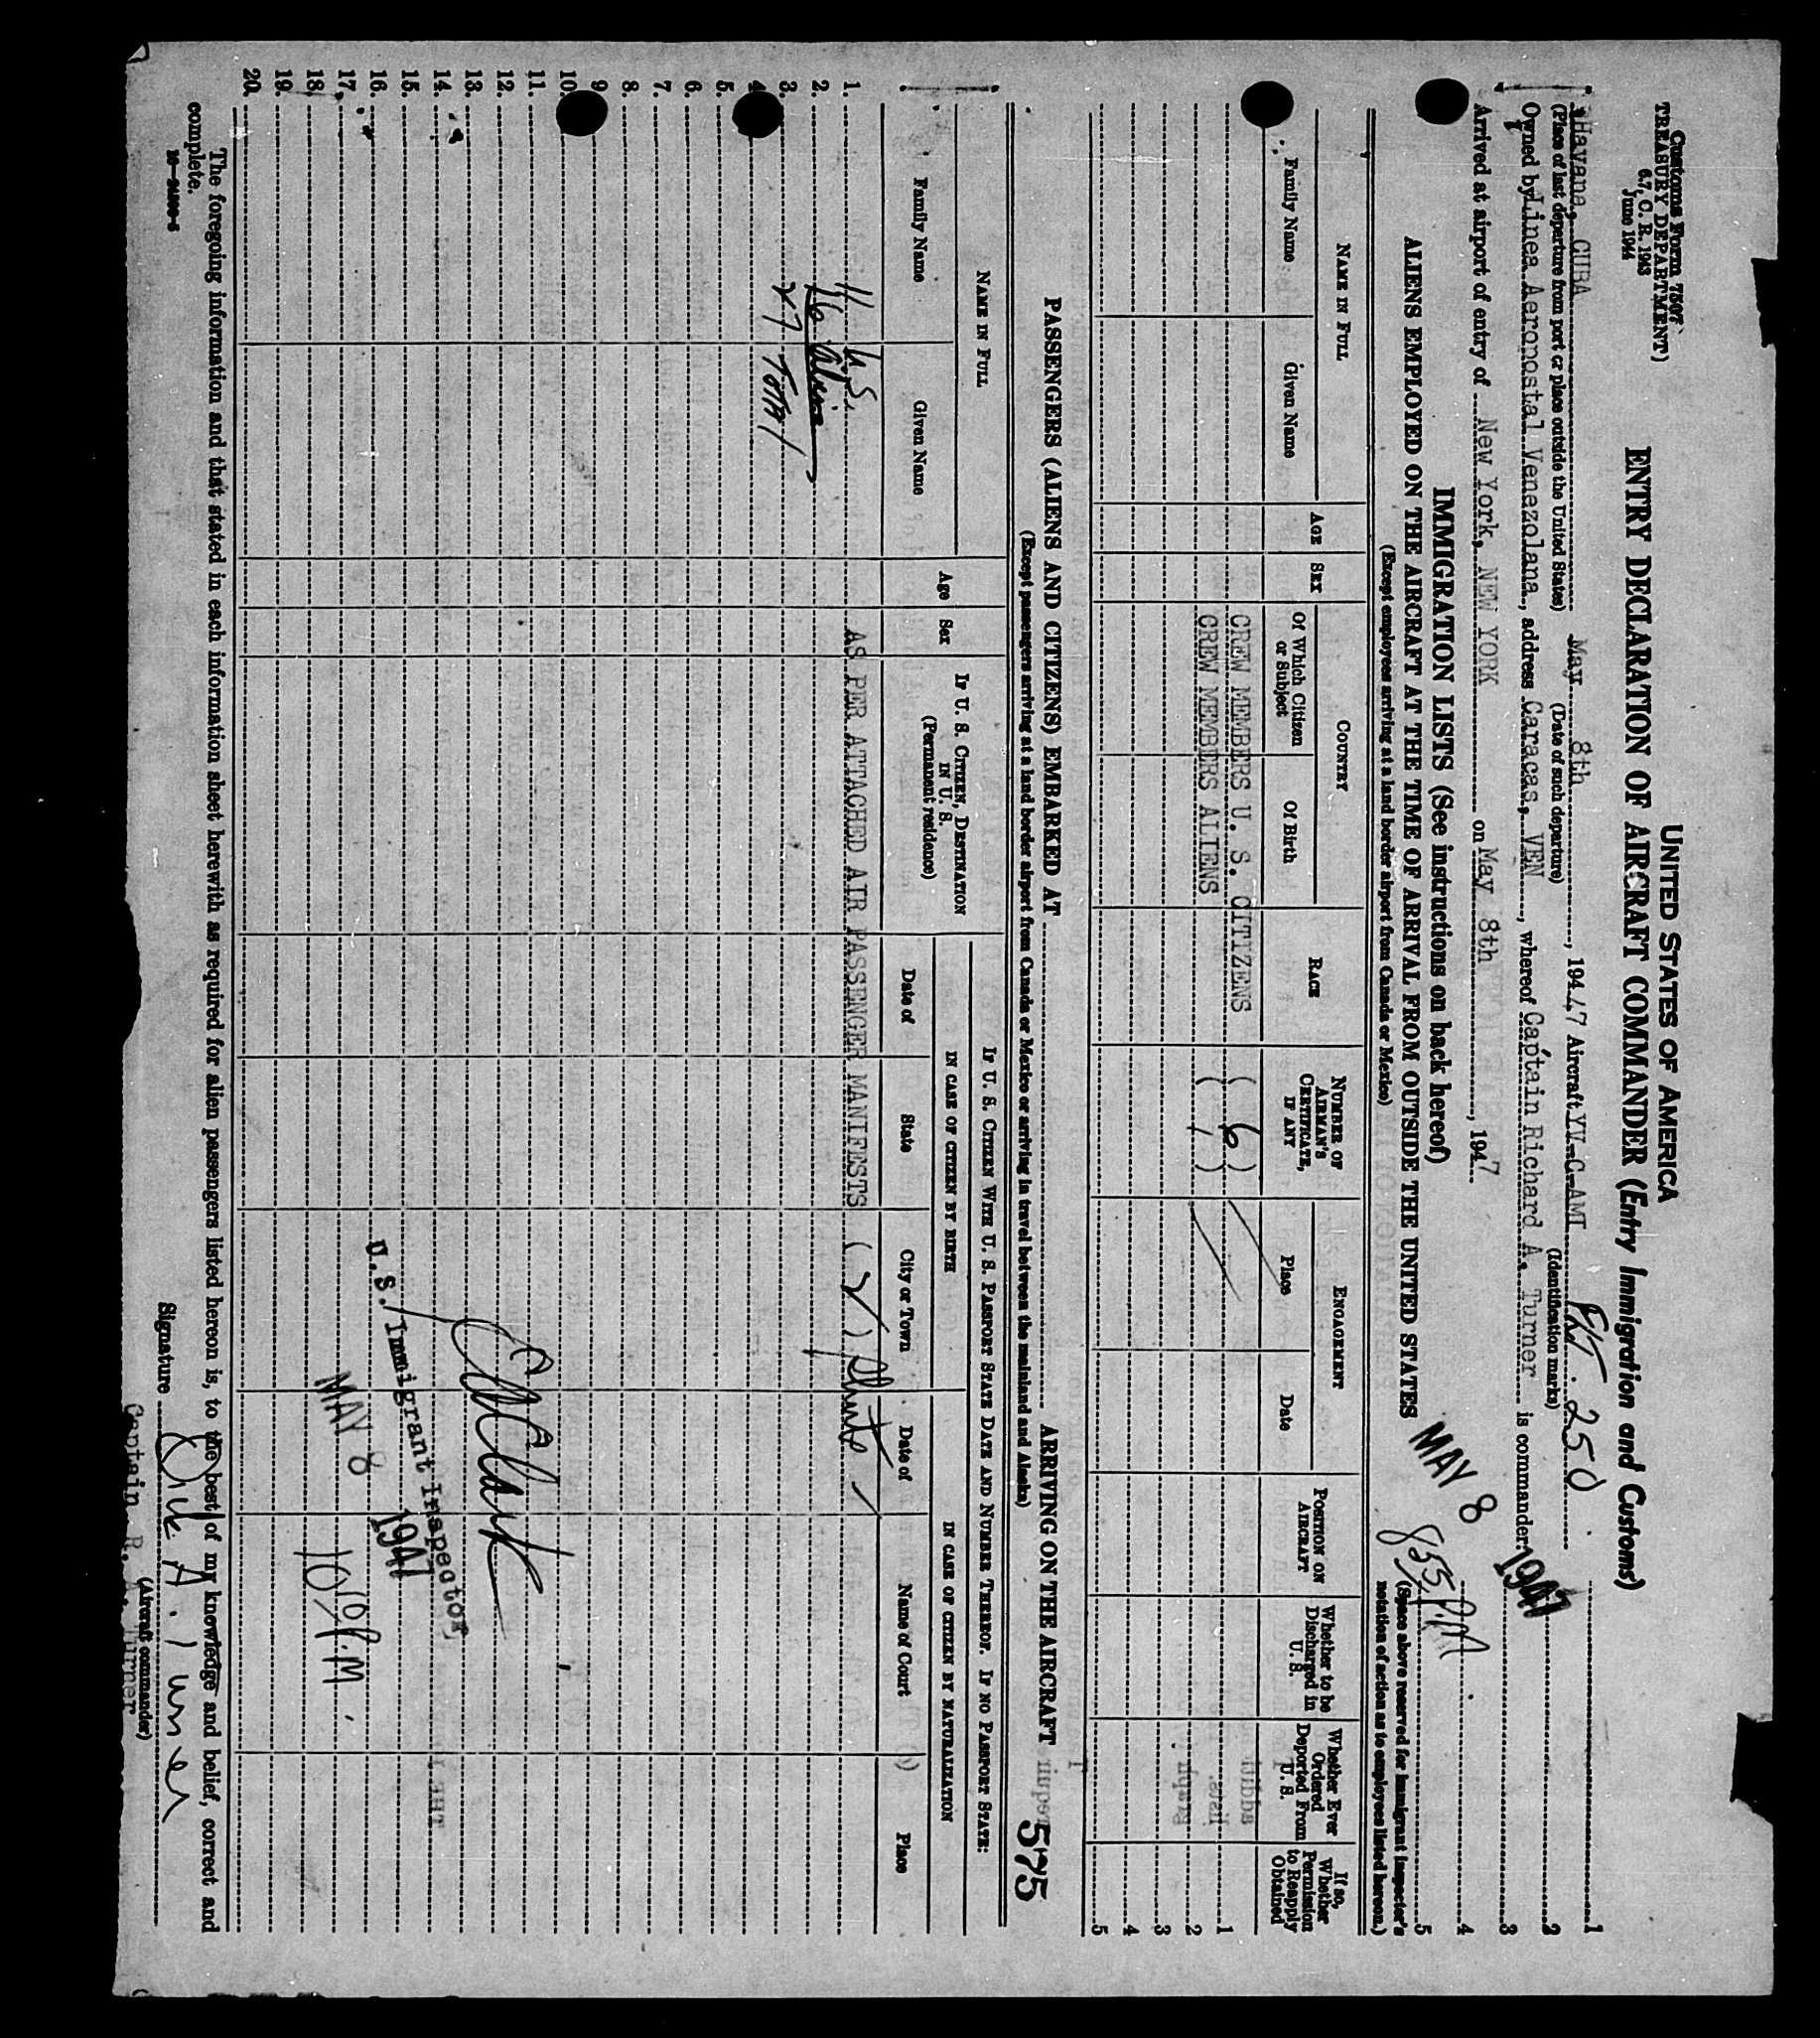 Customs Form 7507
TREASURY DEPARTMENT
6.7, C. R. 1943
June 1944
UNITED STATES OF AMERICA
ENTRY DECLARATION OF AIRCRAFT COMMANDER (Entry Immigration and Customs)
Havana, CUBA May 8th, 1947 Aircraft YV-C-AMI Flt. 250
(Place of last departure from port or place outside the United States) (Date of such departure) (Identification marks)
Owned by Linea Aeropostal Venezolana, address Caracas, VEN, whereof Captain Richard A. Turner is commander.
Arrived at airport of entry of New York, NEW YORK on May 8th, 1947
1
2
3
4
5
MAY 8 1947
855 P.M
IMMIGRATION LISTS (See instructions on back hereof)
ALIENS EMPLOYED ON THE AIRCRAFT AT THE TIME OF ARRIVAL FROM OUTSIDE THE UNITED STATES
(Except employees arriving at a land border airport from Canada or Mexico)
(Space above reserved for immigrant inspector's notation of action as to employees listed hereon.)
NAME IN FULL
Family Name
Given Name
AGE
SEX
COUNTRY
Of Which Citizen or Subject
Of Birth
RACE
NUMBER OF AIRMAN'S CERTIFICATE, IF ANY
ENGAGEMENT
Place
Date
POSITION ON AIRCRAFT
Whether to be Discharged in U. S.
Whether Ever Ordered Deported From U. S.
If so, Whether Permission to Reapply Obtained
CREW MEMBERS U. S. CITIZENS ( 6 ) 1
CREW MEMBERS ALIENS ( 1 ) 2
3
4
5
PASSENGERS (ALIENS AND CITIZENS) EMBARKED AT ARRIVING ON THE AIRCRAFT
575
(Except passengers arriving at a land border airport from Canada or Mexico or arriving in travel between the mainland and Alaska)
NAME IN FULL
Family Name
Given Name
Age
Sex
IF U. S. CITIZEN, DESTINATION IN U. S.
(Permanent residence)
IF U. S. CITIZEN WITH U. S. PASSPORT STATE DATE AND NUMBER THEREOF. IF NO PASSPORT STATE:
IN CASE OF CITIZEN BY BIRTH
IN CASE OF CITIZEN BY NATURALIZATION
Date of
State
City or Town
Date of
Name of Court
Place
1. 11 U.S. AS PER ATTACHED AIR PASSENGER MANIFESTS ( 2 ) Sheets
2. 16 Aliens
3. 27 Total
4.
5.
6.
7.
8.
9.
10.
11.
12.
13.
14.
15.
16.
17.
18.
19.
20.
U.S. Immigrant Inspector
MAY 8 1947
10 10 P.M.
The foregoing information and that stated in each information sheet herewith as required for alien passengers listed hereon is, to the best of my knowledge and belief, correct and
complete.
Signature Dick A. Turner
(Aircraft commander)
Captain R. A. Turner